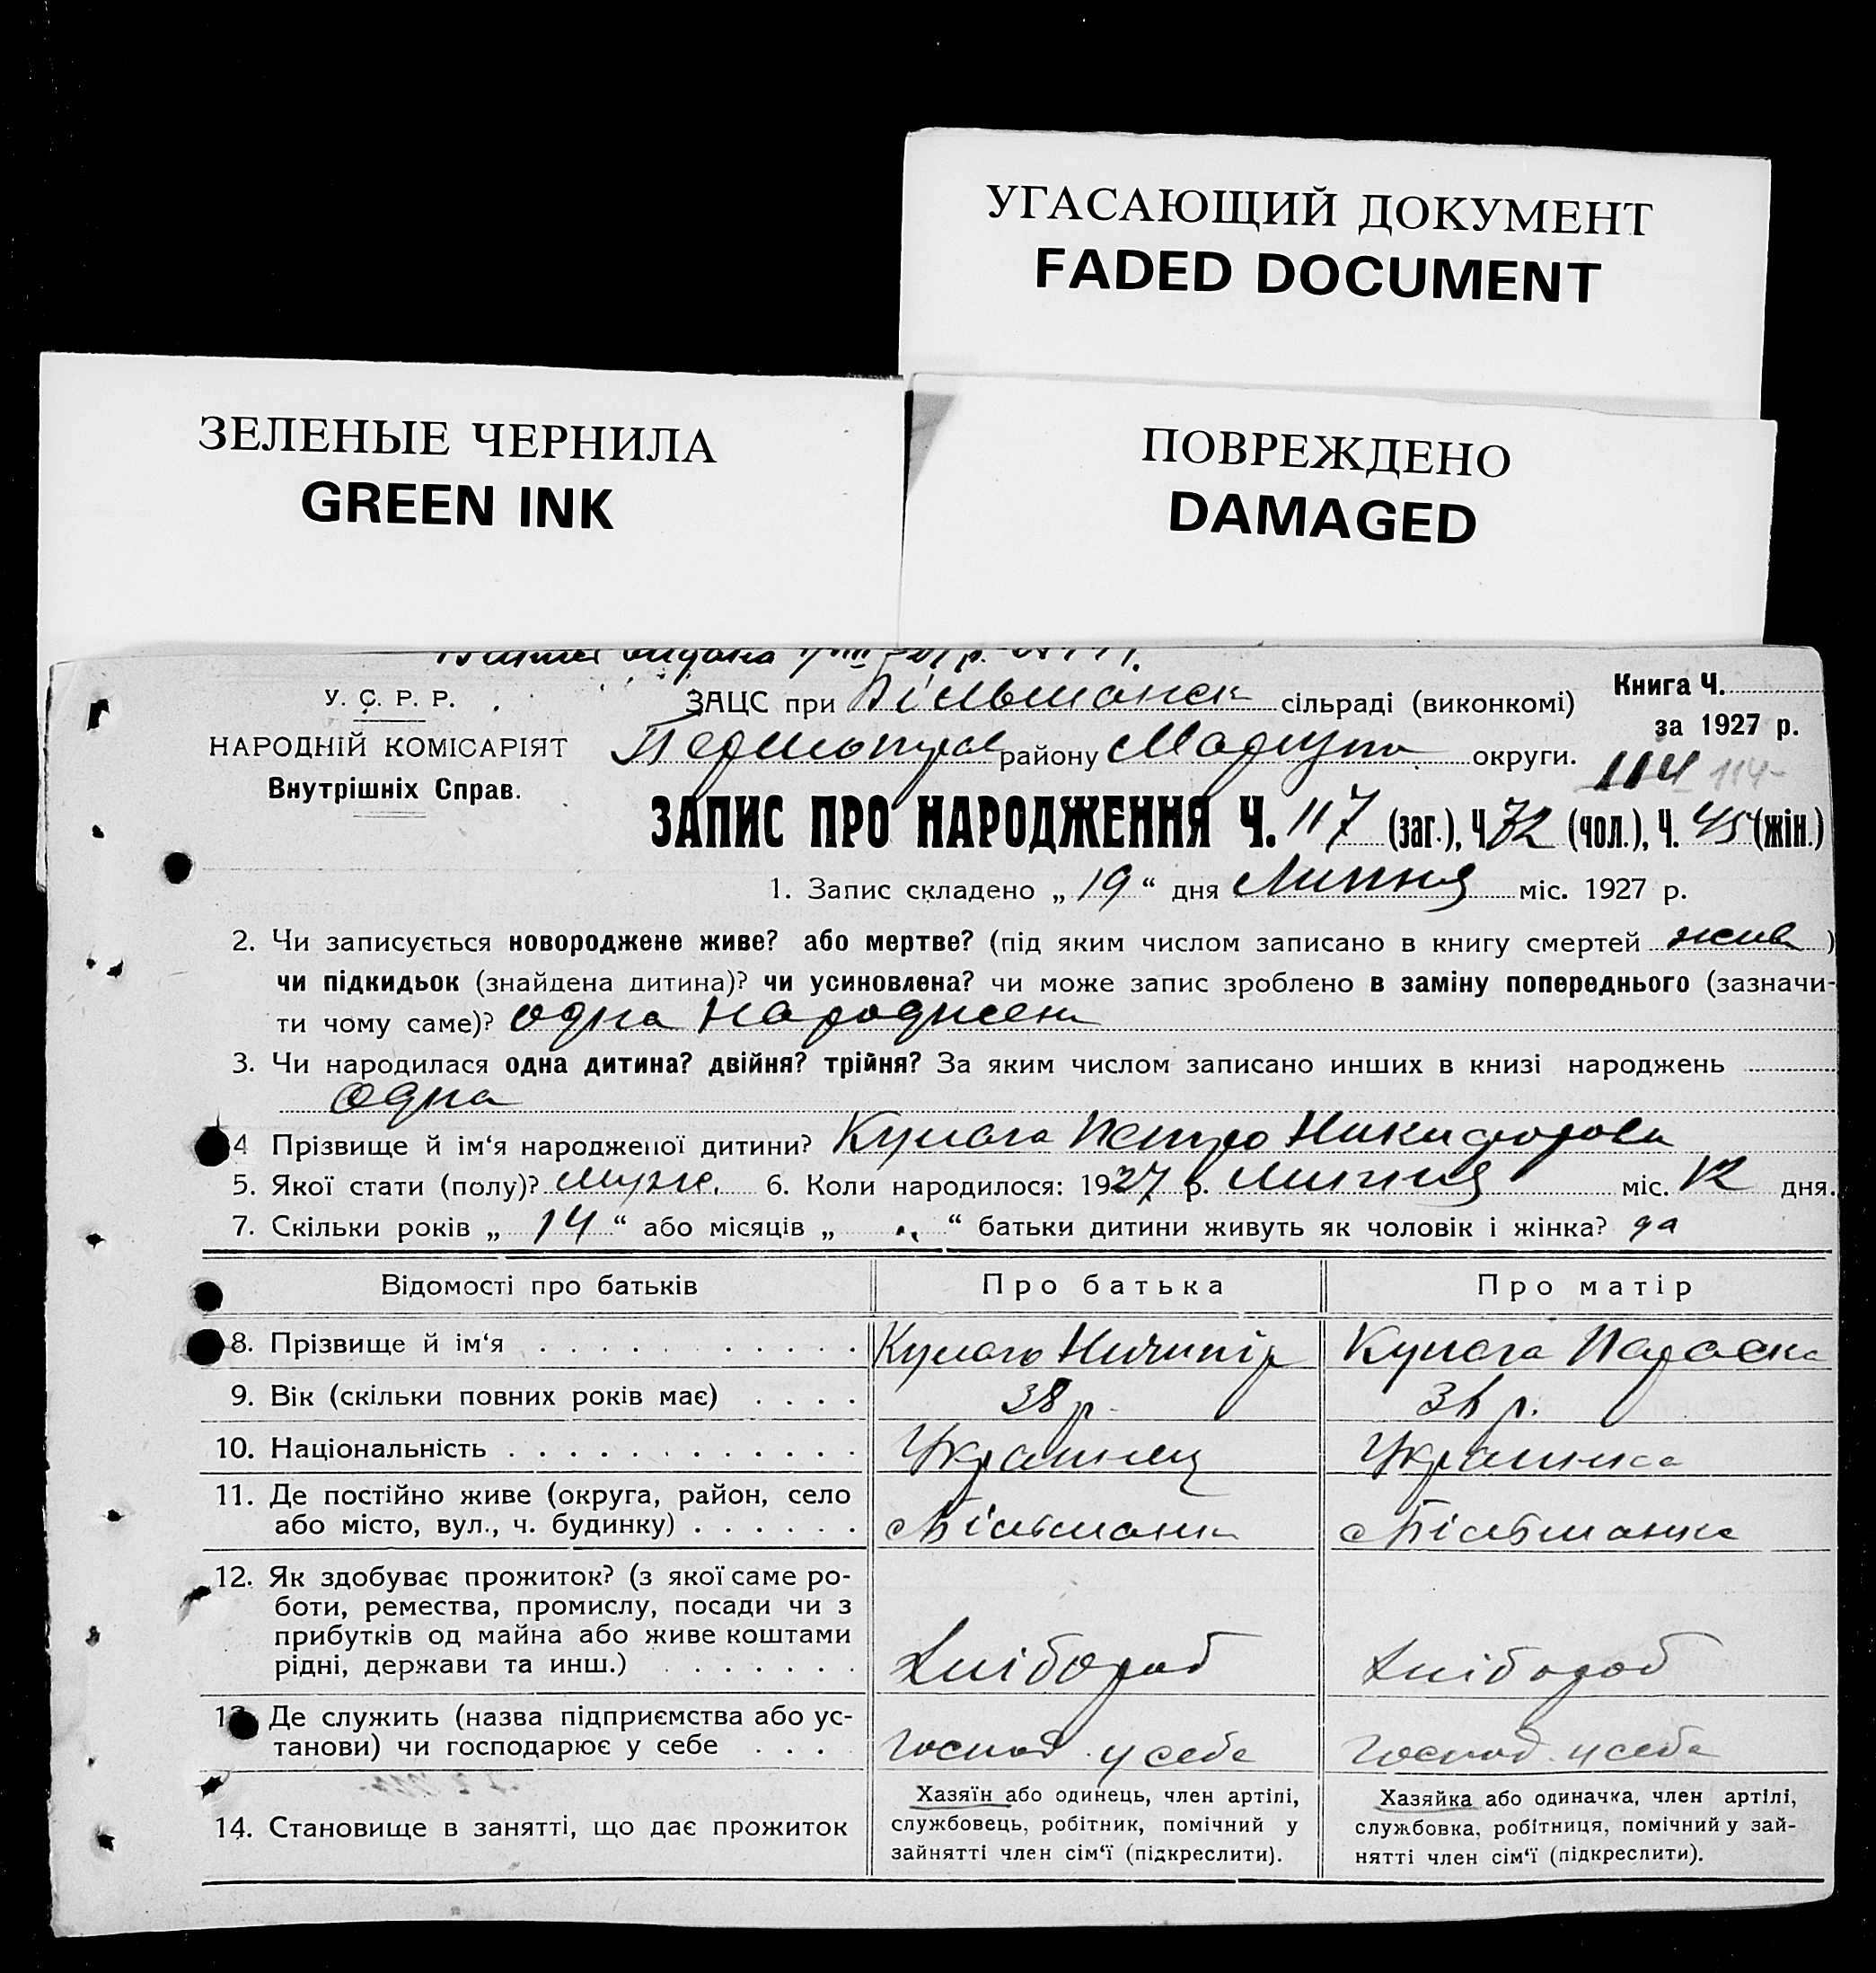 УГАСАЮЩИЙ ДОКУМЕНТ
FADED DOCUMENT
ЗЕЛЕНЫЕ ЧЕРНИЛА
GREEN INK
ПОВРЕЖДЕНО
DAMAGED
видана
У. С. Р. Р.
НАРОДНІЙ КОМІСАРІЯТ
Внутрішніх Справ.
ЗАЦС при Більшанск сільраді (виконкомі)
району Маріуп округи.
Книга Ч.
за 1927 р.
114 114
ЗАПИС ПРО НАРОДЖЕННЯ Ч. 117 (заг.), Ч. 72 (чол.), Ч. 45 (жін.)
1. Запис складено „ 19 “ дня Липня міс. 1927 р.
2. Чи записується новороджене живе? або мертве? (під яким числом записано в книгу смертей жив )
чи підкидьок (знайдена дитина)? чи усиновлена? чи може запис зроблено в заміну попереднього (зазначи-
ти чому саме)? одна народжен
3. Чи народилася одна дитина? двійня? трійня? За яким числом записано инших в книзі народжень
одна
4 Прізвище й ім‘я народженої дитини? Кулага Петро Никифоров
5. Якої стати (полу)? муж. 6. Коли народилося: 1927 р. Липня міс. 12 дня.
7. Скільки років „ 14 “ або місяців „ “ батьки дитини живуть як чоловік і жінка? да
Відомості про батьків Про батька Про матір
8. Прізвище й ім‘я Кулага Ничипір Кулага Параска
9. Вік (скільки повних років має) 38 р. 36 р.
10. Національність Украинец Украинка
11. Де постійно живе (округа, район, село
або місто, вул., ч. будинку) с Більшанка с Більшанка
12. Як здобуває прожиток? (з якої саме ро-
боти, ремества, промислу, посади чи з
прибутків од майна або живе коштами
рідні, держави та инш.) Хлібороб Хлібороб
13. Де служить (назва підприємства або ус-
танови) чи господарює у себе Господ. у себе Господ. у себе
14. Становище в занятті, що дає прожиток
Хазяїн або одинець, член артілі,
службовець, робітник, помічний у
зайнятті член сім‘ї (підкреслити).
Хазяйка або одиначка, член артілі,
службовка, робітниця, помічний у зай-
нятті член сім‘ї (підкреслити).